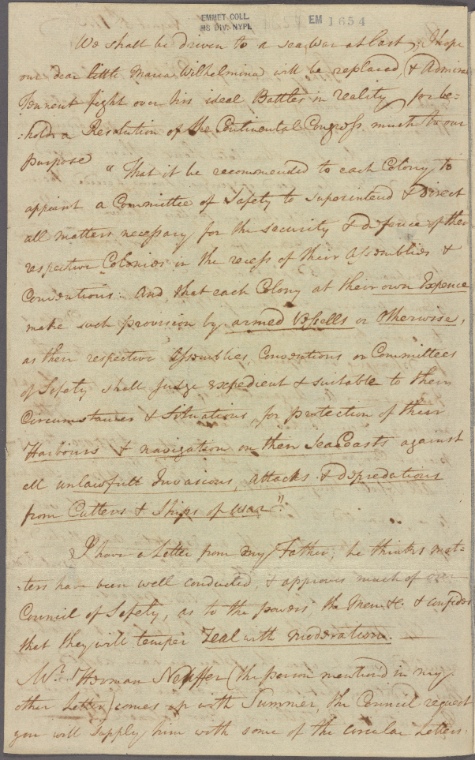 EMMET COLL.
MS. DIV. NYPL
EM 1654
We shall be driven to a Sea War at last I hope
our dear little Maria Wilhelmina will be replaced, & Admiral
Turnent fight over his ideal Battles in reality, for be-
-hold a Resolution of the Continental Congress, much to our
purpose "That it be recommended to each Colony to
appoint a Committee of Safety to Superintend & Direct
all matters necessary for the security & defence of their
respective Colonies in the recess of their Assemblies &
Conventions. And, that each Colony at their own Expence
make such provision by armed Vessells or Otherwise,
as their respective Assemblies Conventions or Committees
of Safety shall Judge expedient & suitable to their
Circumstances & Situations for protection of their
Harbours & navigation on their Sea Coasts against
all unlawfull Invasions, attacks & depredations
from Cutters & Ships of War".
I have a Letter from my Father, he thinks mat-
-ters have been well conducted, & approves much of
Council of Safety, as to the powers the Men &c & confides
that they will temper Zeal with moderation. —
Mr. Herman Neuffer (the person mentiond in my
other Letter) comes up with Summer, the Council request
you will supply him with some of the Circular Letters.